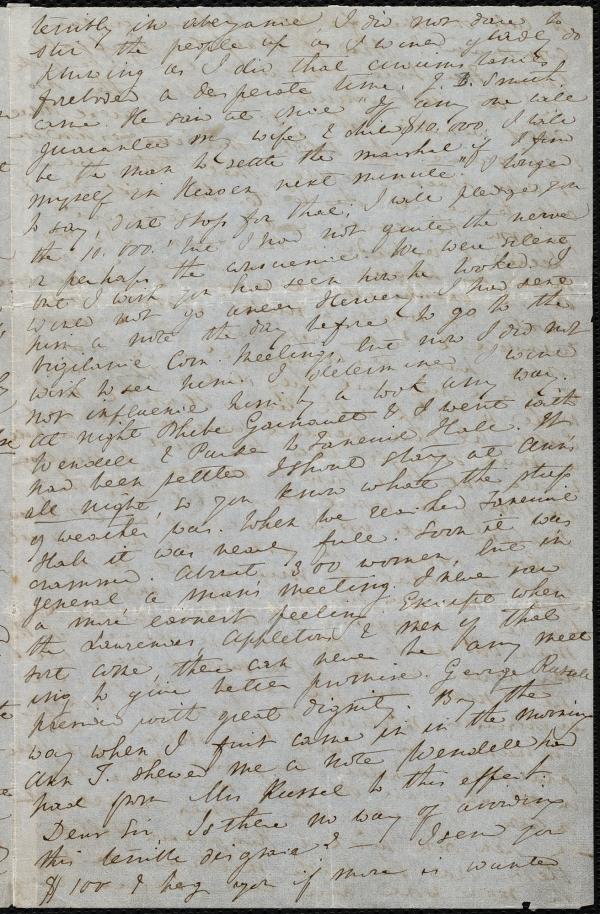 terribly in abeyance, I did not dare to
stir the people up as I would gladly do
knowing as I did that circumstances
foreboded a desperate time. J. B. Smith
came. He said at once "If any one will
guarantee my wife & child $10.000. I will
be the man to settle the marshal if I find
myself in Heaven next minute." I longed
to say, dont stop for that; I will pledge you
the 10.000. but I had not quite the nerve
or perhaps the conscience. We were silent
but I wish you had seen how he looked. I
would not go under Hervey. I had sent
him a note the day before to go to the
Vigilance Com Meetings, but now I did not
wish to see him. I determined I would
not influence him by a look any way.
At night Phebe Garnautt & I went with
Wendell & Parker to Faneuil Hall. It
had been settled I should stay at Ann's
all night, so you know what the
of weather was. When we reached Faneuil
Hall it was nearly full. Soon it was
crammed. About 300 women, but in
general a man's meeting. I never saw
a more earnest feeling. Except when
the Lawrences, Appletons & men of that
sort come, there can never be any meet
ing to give better promise. George Russell
presided with great dignity. By the
way when I first came in in the morning
Ann T. shewed me a note Wendell had
had from Mrs Russel to this effect.
Dear Sir Is there no way of avoiding
this terrible disgrace? — I send you
$100 & beg you if more is wanted